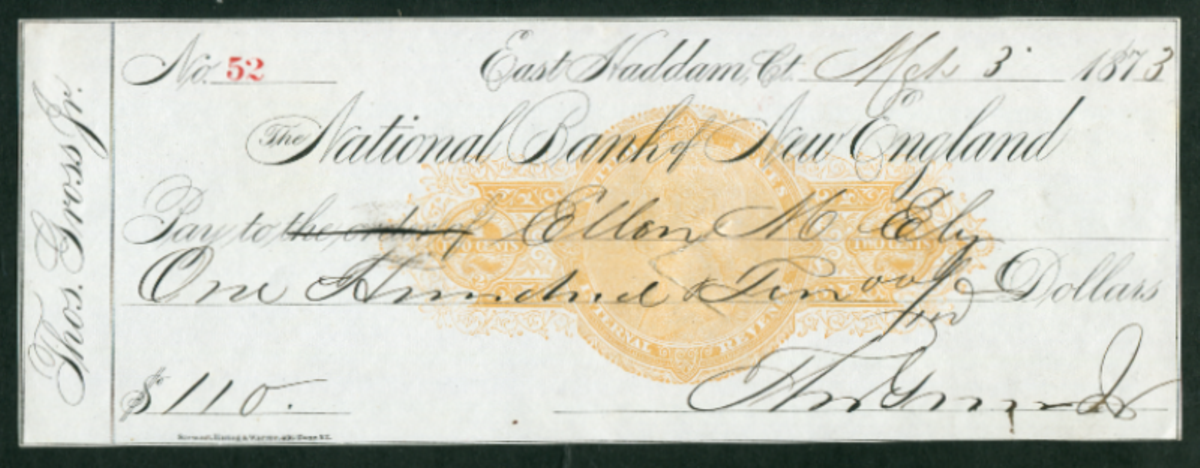 Thos. Gross Jr.
No. 52 East Haddam, Ct. Mch 3 1873
The National Bank of New England
Pay to the order of Ellen M Ely
One Hundred & Ten 00/100 Dollars
TWO CENTS TWO CENTS
INTERNAL REVENUE
$110.
Thos Gross Jr